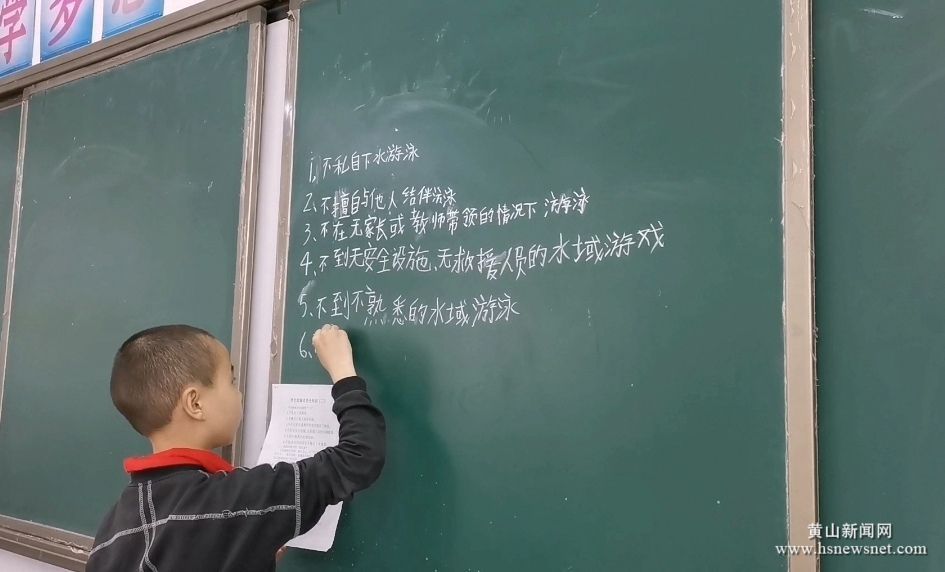 学梦想
1、不私自下水游泳
2、不擅自与他人结伴游泳
3、不在无家长或教师带领的情况下游泳
4、不到无安全设施、无救援人员的水域游戏
5、不到不熟悉的水域游泳
6、
黄山新闻网
www.hsnewsnet.com